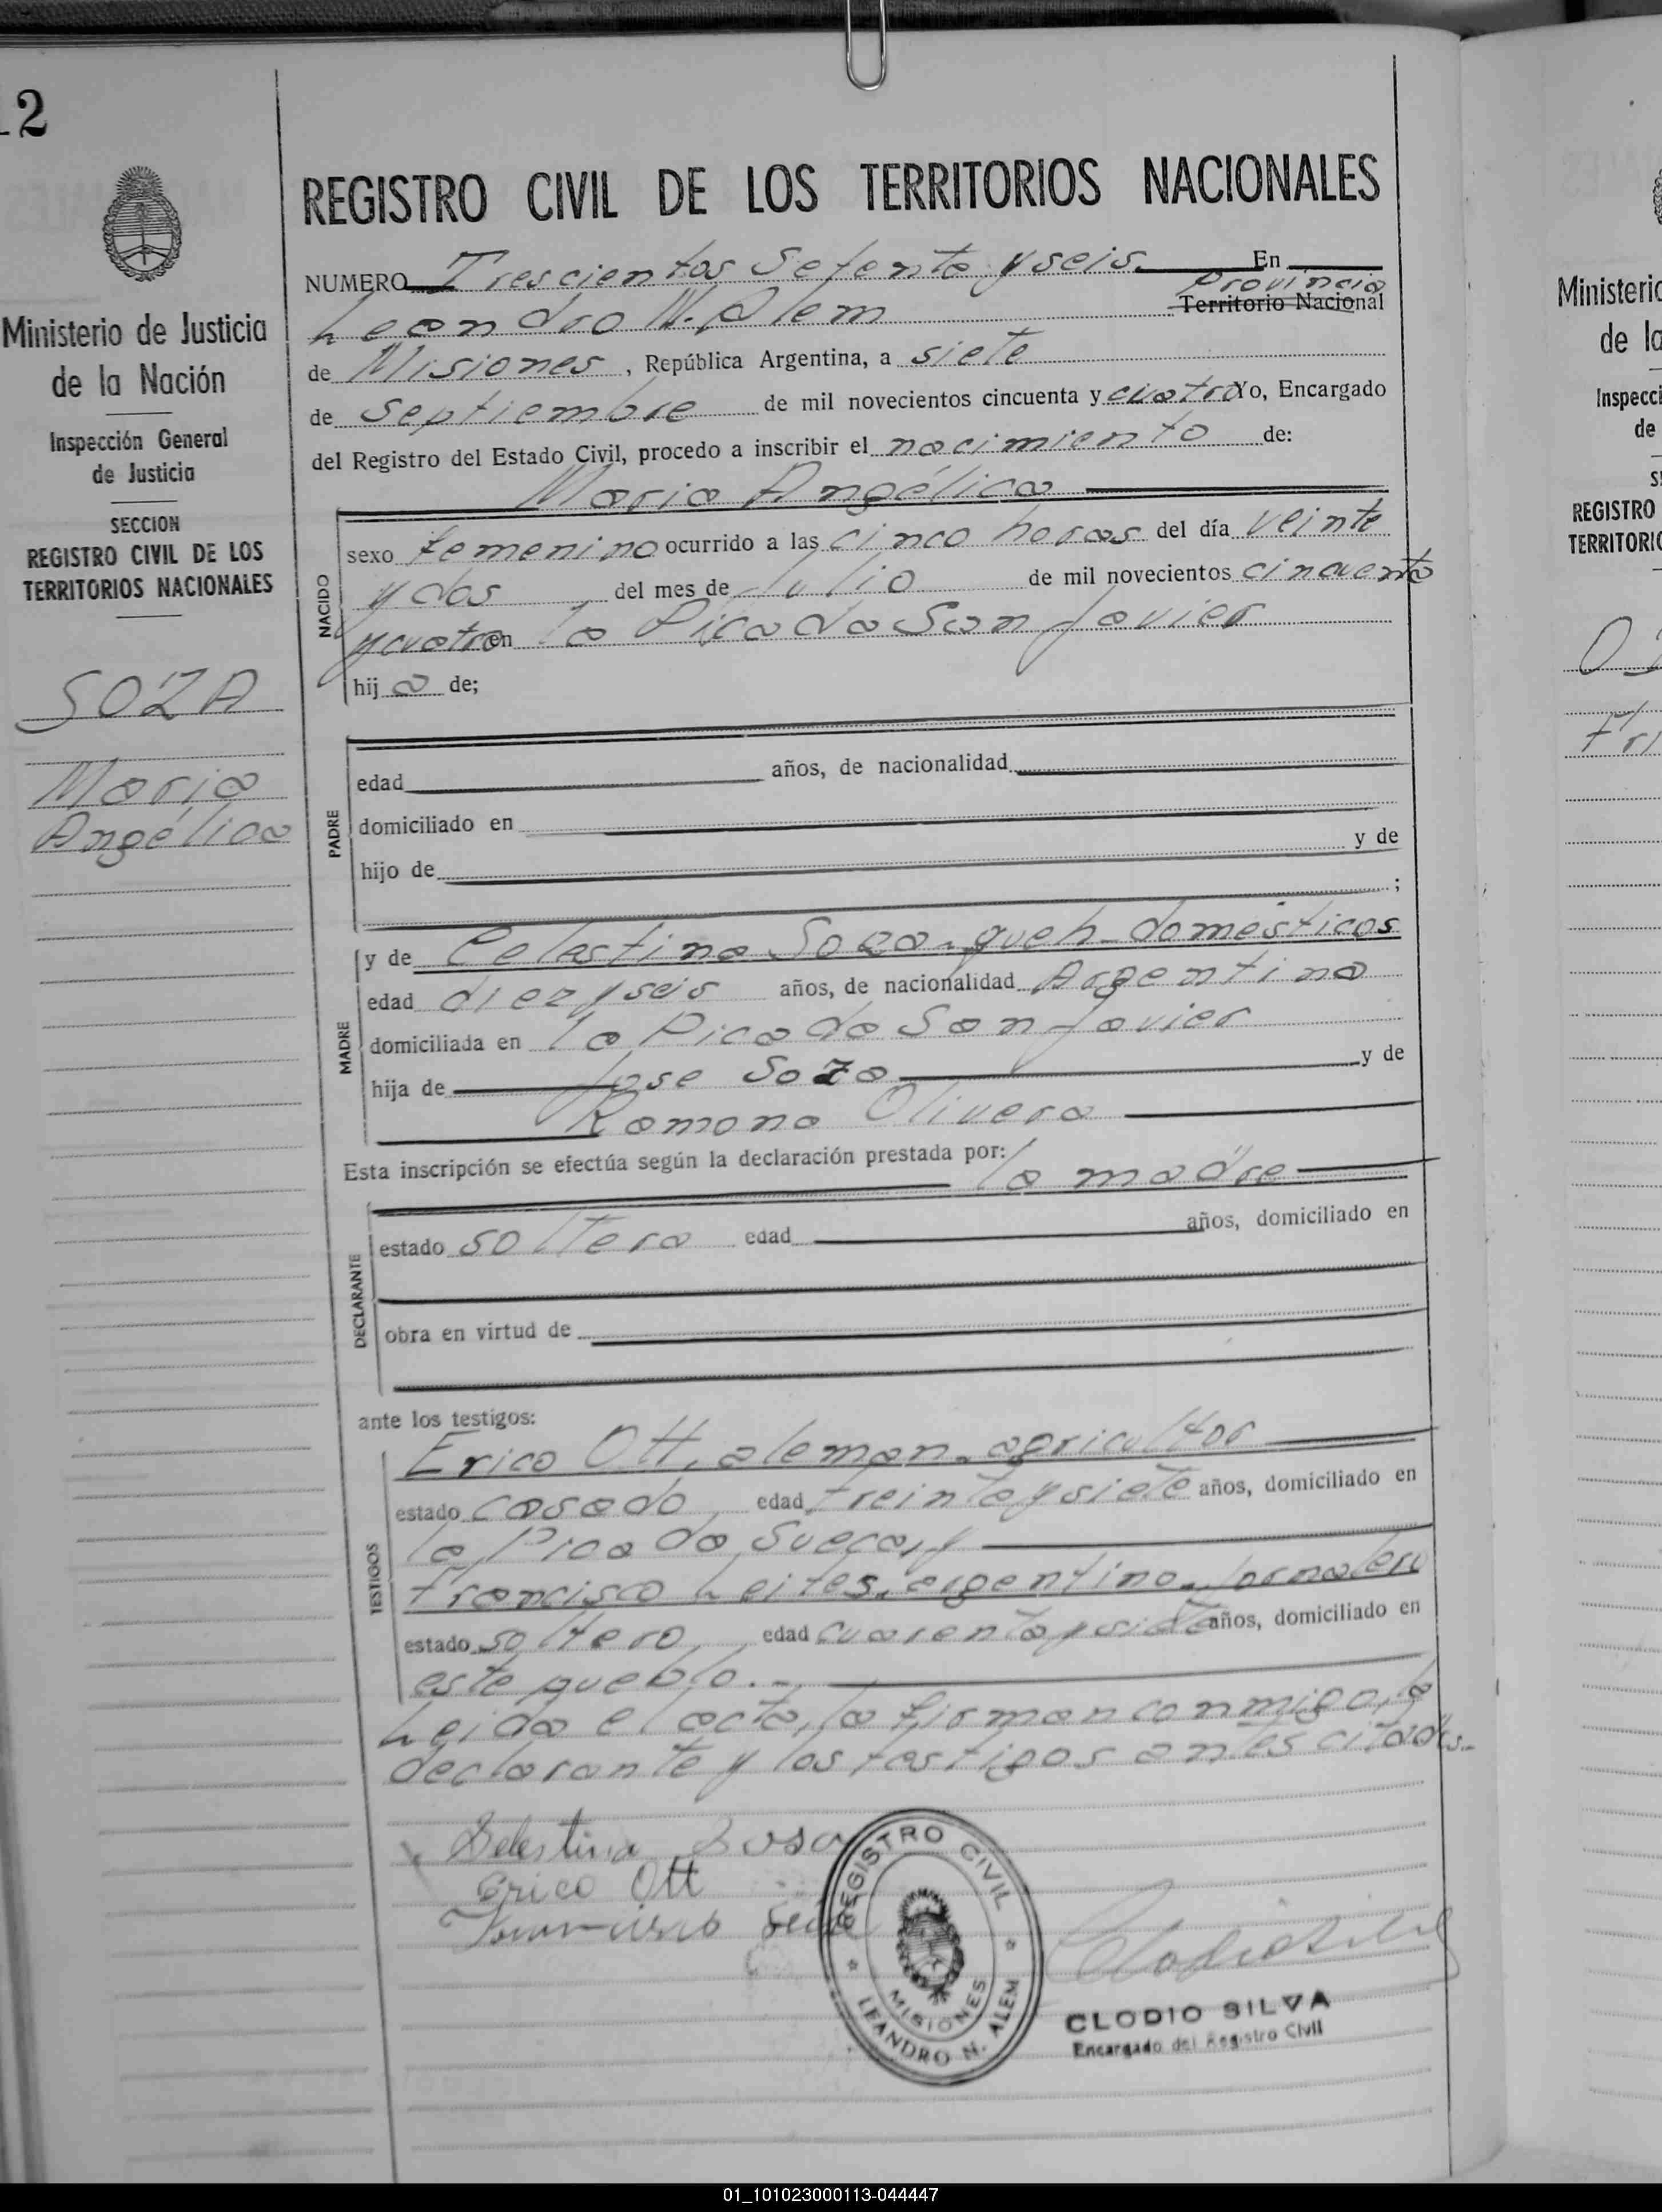 12
Ministerio de Justicia
de la Nación
Inspección General
de Justicia
SECCION
REGISTRO CIVIL DE LOS
TERRITORIOS NACIONALES
SOZA
Maria
Angélica
REGISTRO CIVIL DE LOS TERRITORIOS NACIONALES
NUMERO Trescientos Setenta y seis. En
Leandro N. Alem Provincia Territorio Nacional
de Misiones, República Argentina, a siete
de Septiembre de mil novecientos cincuenta y cuatro Yo, Encargado
del Registro del Estado Civil, procedo a inscribir el nacimiento de:
Maria Angélica
NACIDO
sexo femenino ocurrido a las cinco horas del día veinte
y dos del mes de Julio de mil novecientos cincuenta
y cuatro en la Picada San Javier
hij a de;
PADRE
edad años, de nacionalidad
domiciliado en
hijo de y de
;
MADRE
y de Celestina Soza. queh. domésticos
edad diez y seis años, de nacionalidad Argentina
domiciliada en la Picada San Javier
hija de Jose Soza y de
Ramona Olivera
Esta inscripción se efectúa según la declaración prestada por: la madre
DECLARANTE
estado soltera edad años, domiciliado en
obra en virtud de
ante los testigos:
TESTIGOS
Erico Ott, aleman. agricultor
estado casado, edad treinta y siete años, domiciliado en
la Picada Sueca, y
Francisco Leites. argentino. jornalero
estado soltero, edad cuarenta y siete años, domiciliado en
este pueblo.-
Leida el acta, la firman conmigo, la
declarante y los testigos antes citados.-
Selestina Sosa
Erico Ott
Francisco
REGISTRO CIVIL
MISIONES
LEANDRO N. ALEM
CLODIO SILVA
Encargado del Registro Civil
Ministerio
de la
Inspecci
de
S
REGISTRO
TERRITORIO
Fri
01_101023000113-044447